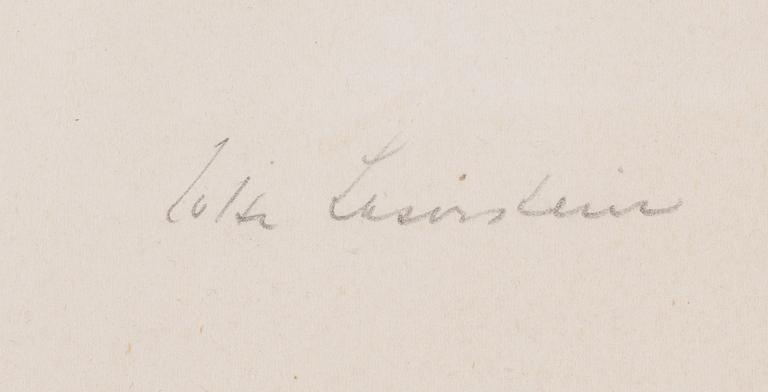 Lotte Laserstein